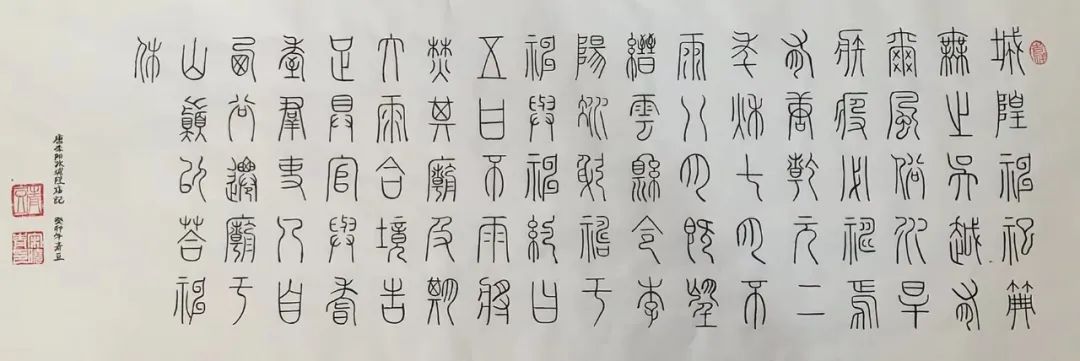 城隍神祀典
無之吳越有
爾風俗水旱
疾疫必禱焉
有唐乾元二
年秋七月不
雨八月既望
縉雲縣令李
陽冰躬禱于
神與神約曰
五日不雨將
焚其廟及期
大雨合境告
足具官與耆
耋羣吏乃自
西谷遷廟于
山巔以答神
休
唐李阳冰城隍庙记 癸卯年青豆